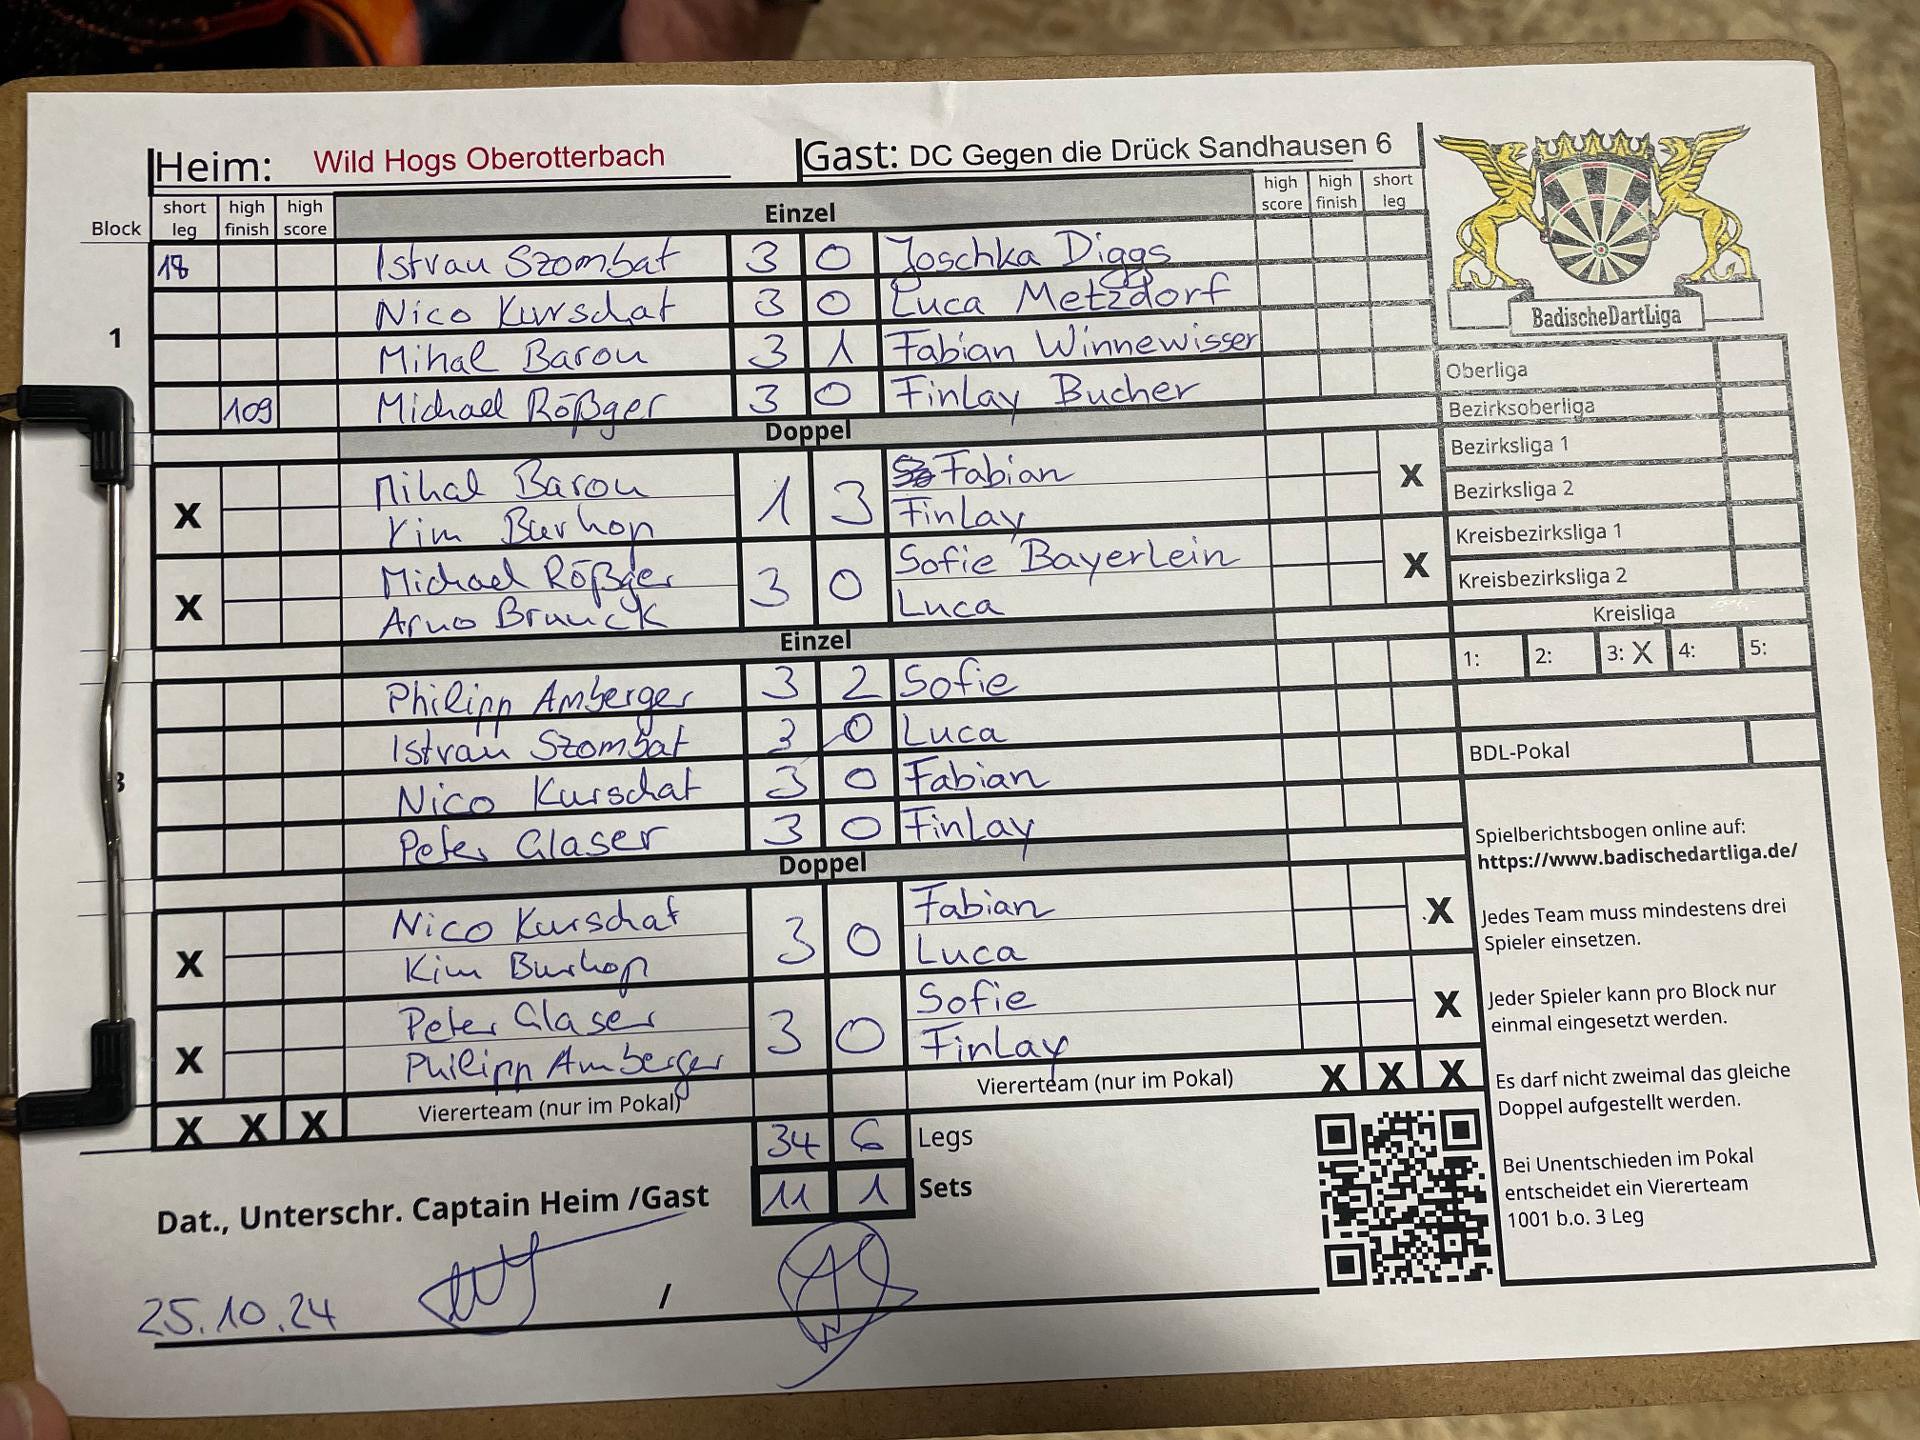 Heim: Wild Hogs Oberotterbach Gast: DC Gegen die Drück Sandhausen 6
Block short leg high finish high score Einzel high score high finish short leg
18 Istvan Szombat 3 0 Joschka Diggs
Nico Kurschat 3 0 Luca Metzdorf
1
Mihal Barou 3 1 Fabian Winnewisser
109 Michael Rößger 3 0 Finlay Bucher
Doppel
X Mihal Barou 1 3 Fabian X
Kim Burhop Finlay
X Michael Rößger 3 0 Sofie Bayerlein X
Arno Brunck Luca
Einzel
Philipp Amberger 3 2 Sofie
Istvan Szombat 3 0 Luca
Nico Kurschat 3 0 Fabian
Peter Glaser 3 0 Finlay
Doppel
X Nico Kurschat 3 0 Fabian X
Kim Burhop Luca
X Peter Glaser 3 0 Sofie X
Philipp Amberger Finlay
X X X Viererteam (nur im Pokal) Viererteam (nur im Pokal) X X X
34 6 Legs
11 1 Sets
Dat., Unterschr. Captain Heim /Gast
25.10.24 /
BadischeDartLiga
Oberliga
Bezirksoberliga
Bezirksliga 1
Bezirksliga 2
Kreisbezirksliga 1
Kreisbezirksliga 2
Kreisliga
1: 2: 3: X 4: 5:
BDL-Pokal
Spielberichtsbogen online auf:
https://www.badischedartliga.de/
Jedes Team muss mindestens drei
Spieler einsetzen.
Jeder Spieler kann pro Block nur
einmal eingesetzt werden.
Es darf nicht zweimal das gleiche
Doppel aufgestellt werden.
Bei Unentschieden im Pokal
entscheidet ein Viererteam
1001 b.o. 3 Leg